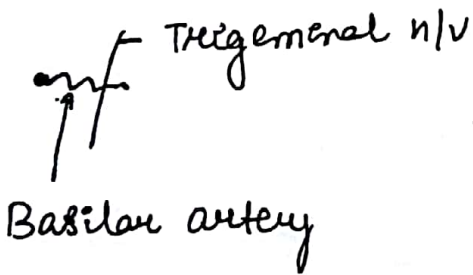 Trigeminal n/v
Basilar artery